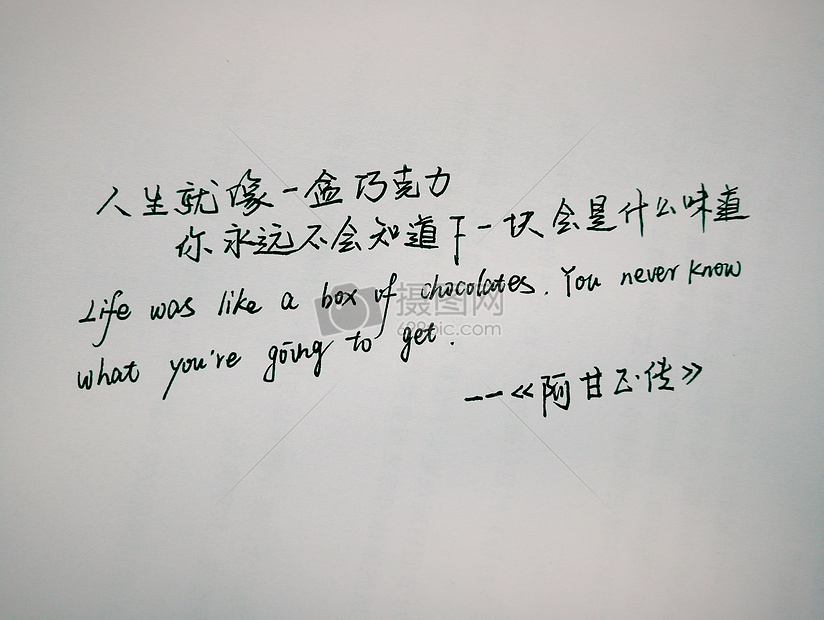 人生就像一盒巧克力
你永远不会知道下一块会是什么味道
Life was like a box of chocolates. You never know
摄图网
699pic.com
what you're going to get.
--《阿甘正传》